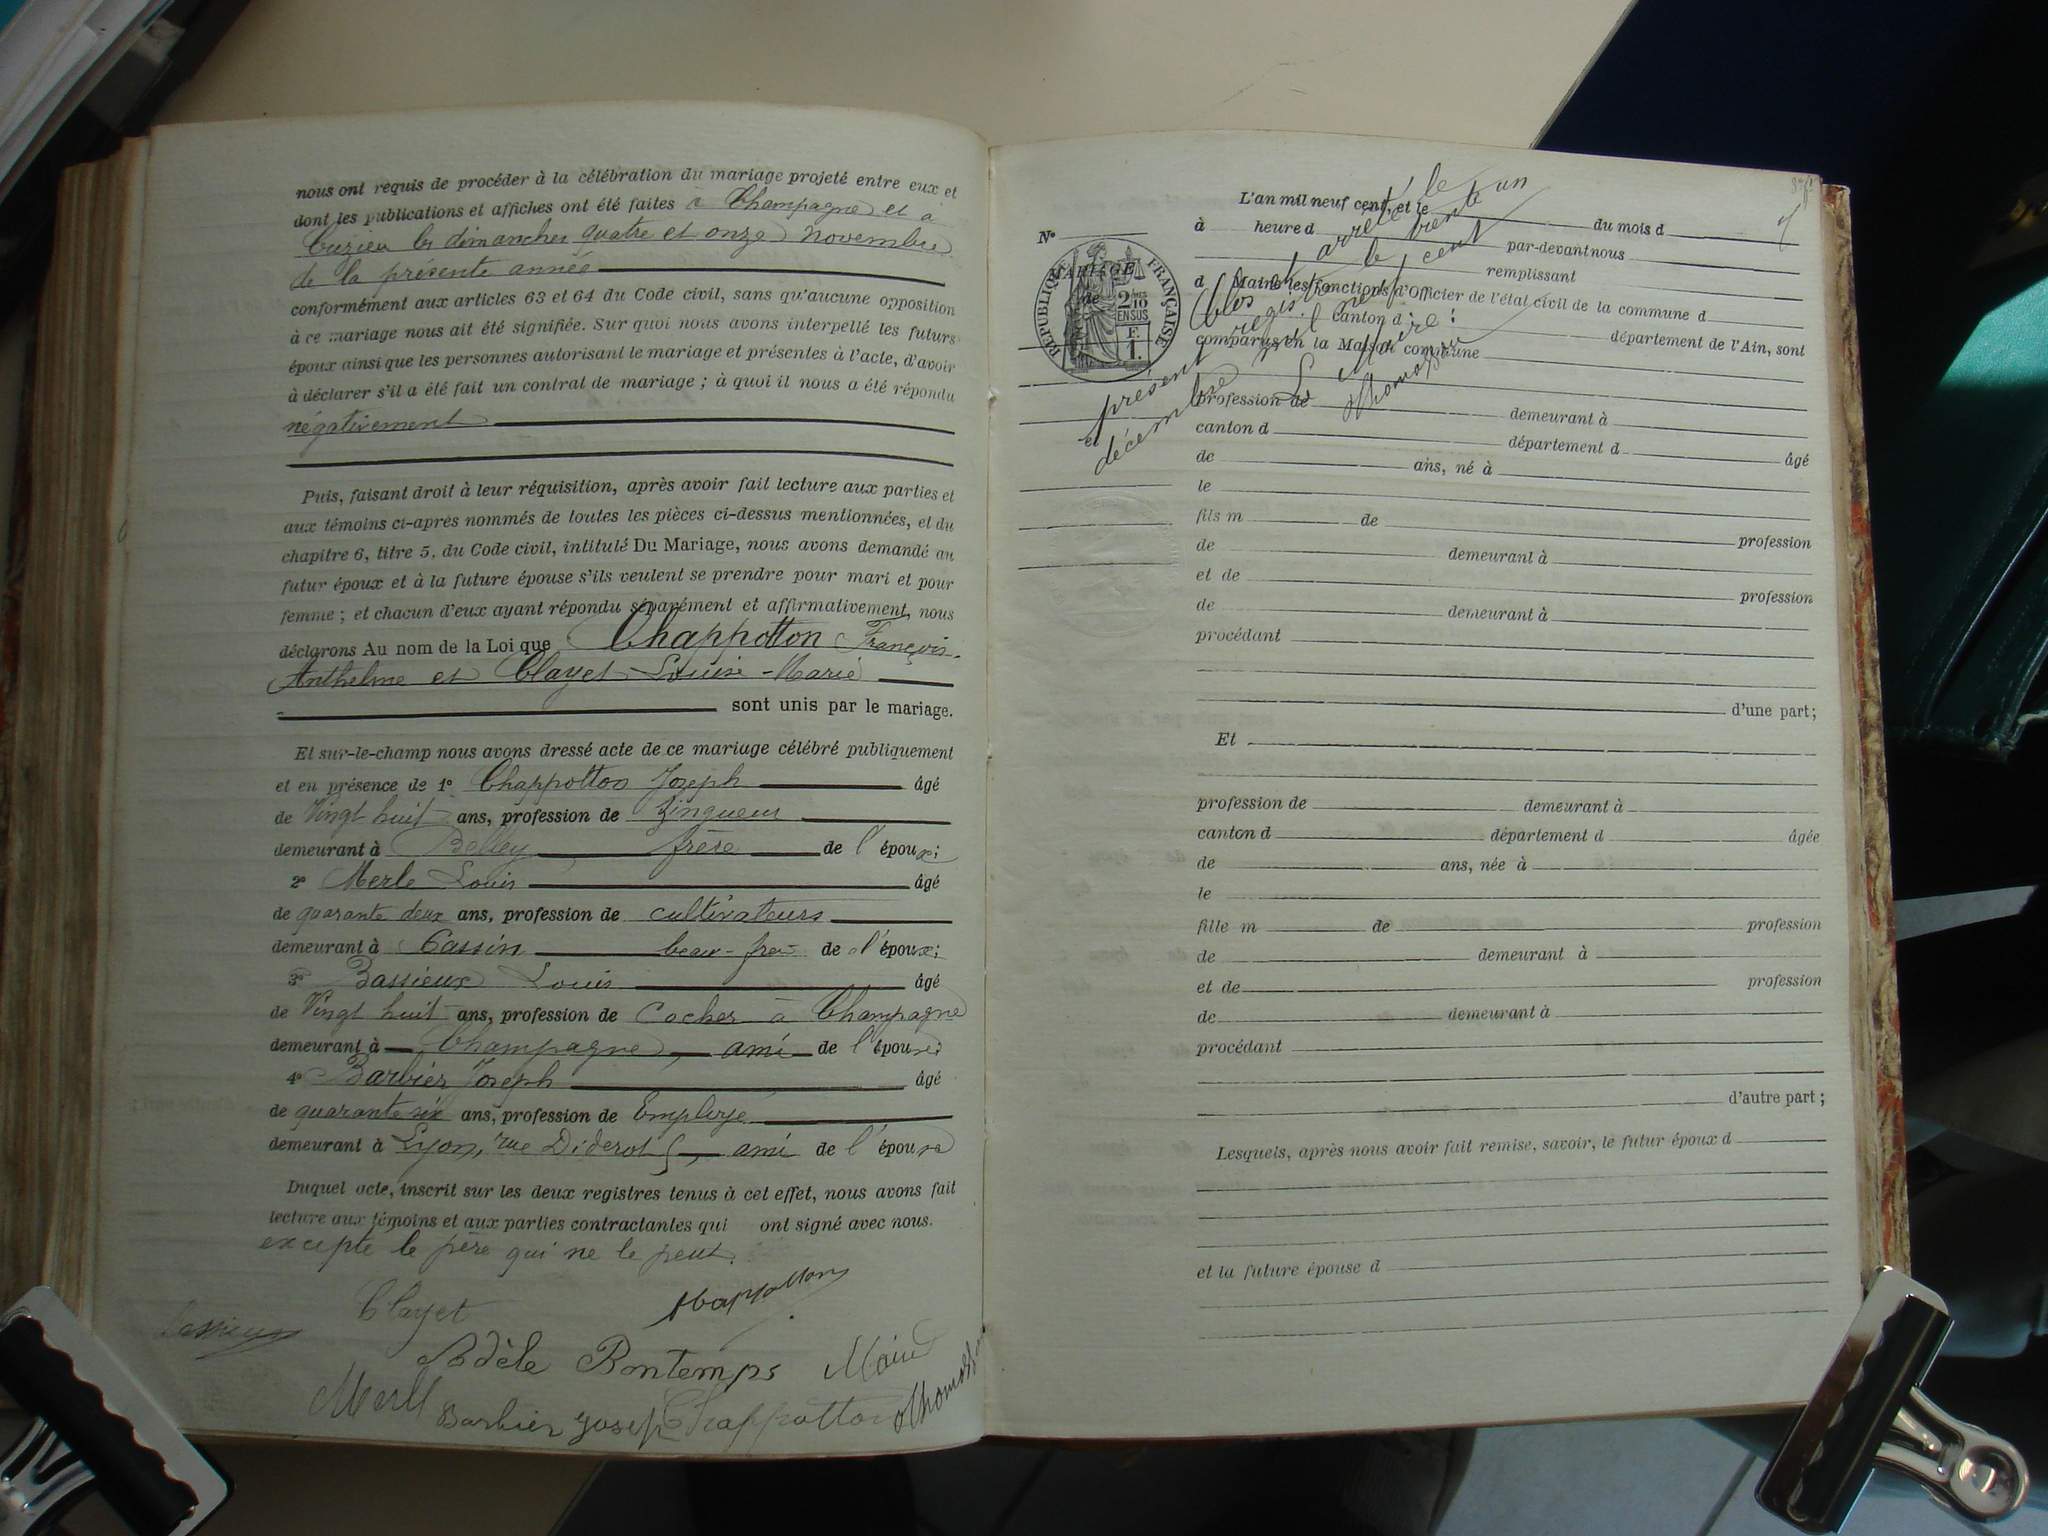 nous ont requis de procéder à la célébration du mariage projeté entre eux et
dont les publications et affiches ont été faites à Champagne et à
Cuzieu les dimanches quatre et onze novembre
de la présente année
conformément aux articles 63 et 64 du Code civil, sans qu'aucune opposition
à ce mariage nous ait été signifiée. Sur quoi nous avons interpellé les futurs
époux ainsi que les personnes autorisant le mariage et présentes à l'acte, d'avoir
à déclarer s'il a été fait un contrat de mariage ; à quoi il nous a été répondu
négativement
Puis, faisant droit à leur réquisition, après avoir fait lecture aux parties et
aux témoins ci-après nommés de toutes les pièces ci-dessus mentionnées, et du
chapitre 6, titre 5, du Code civil, intitulé Du Mariage, nous avons demandé au
futur époux et à la future épouse s'ils veulent se prendre pour mari et pour
femme ; et chacun d'eux ayant répondu séparément et affirmativement, nous
déclarons Au nom de la Loi que Chappotton François-
Anthelme et Clayet Louise-Marie
sont unis par le mariage.
Et sur-le-champ nous avons dressé acte de ce mariage célébré publiquement
et en présence de 1° Chappotton Joseph âgé
de Vingt huit ans, profession de Zingueur
demeurant à Belley frère de l'époux;
2° Merle Louis âgé
de quarante deux ans, profession de cultivateurs
demeurant à Cassin beau-frè de l'époux;
3° Bassieux Louis âgé
de Vingt huit ans, profession de Cocher à Champagne
demeurant à Champagne, ami de l'épouse;
4° Barbier Joseph âgé
de quarante six ans, profession de Employé
demeurant à Lyon, rue Diderot 5, ami de l'épouse
Duquel acte, inscrit sur les deux registres tenus à cet effet, nous avons fait
lecture aux témoins et aux parties contractantes qui ont signé avec nous.
excepté le père qui ne le peut.
Clayet Chappotton
Bassieux
Adèle Bontemps Maire
Merle Barbier Joseph Chappotton
N°
MARIAGE
de
RÉPUBLIQUE FRANÇAISE
2/10 EN SUS
F.
1.
L'an mil neuf cent, et le du mois d
à heure d par-devant nous
remplissant
d Maire les fonctions d'Officier de l'état civil de la commune d
canton d
département de l'Ain, sont
comparus en la Maison commune
Clos et arrêté le
présent registre le trente un
décembre mil neuf cent
Le Maire:
profession de demeurant à
canton d département d âgé
de ans, né à
le
fils m de profession
de demeurant à
et de profession
de demeurant à
procédant
d'une part;
Et
profession de demeurant à
canton d département d âgée
de ans, née à
le
fille m de profession
de demeurant à
et de profession
de demeurant à
procédant
d'autre part;
Lesquels, après nous avoir fait remise, savoir, le futur époux d
et la future épouse d